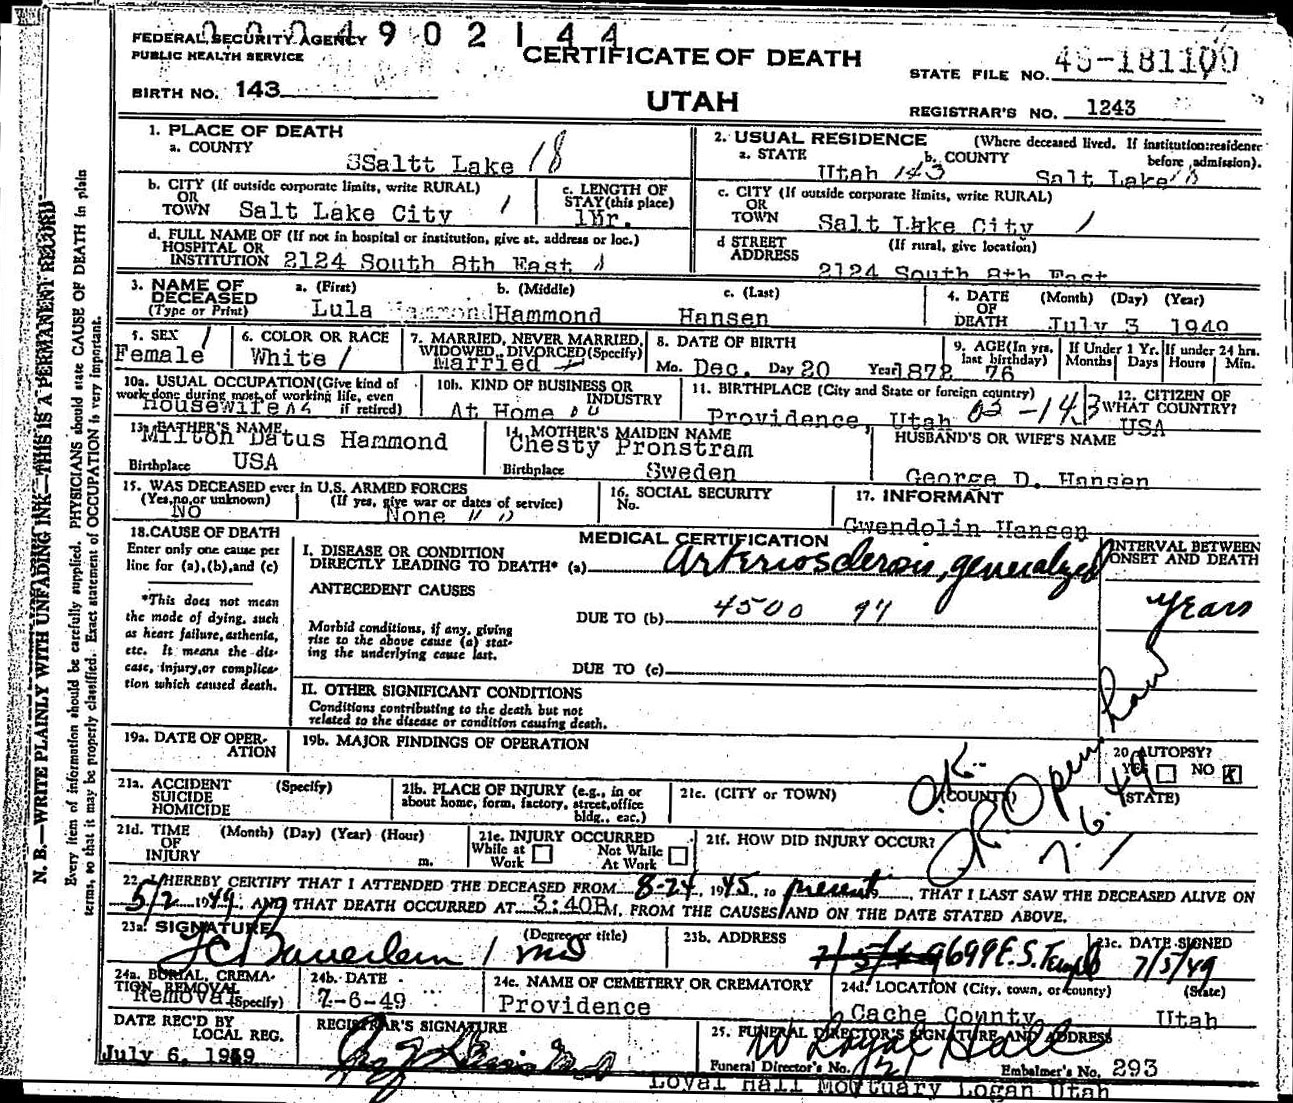 0004902144
FEDERAL SECURITY AGENCY
PUBLIC HEALTH SERVICE
CERTIFICATE OF DEATH
STATE FILE NO. 49-181100
BIRTH NO. 143
UTAH
REGISTRAR'S NO. 1243
1. PLACE OF DEATH
a. COUNTY
SSaltt Lake 18
2. USUAL RESIDENCE (Where deceased lived. If institution: residence before admission).
a. STATE Utah 143 b. COUNTY Salt Lake
b. CITY (If outside corporate limits, write RURAL)
OR TOWN Salt Lake City 1
c. LENGTH OF STAY (this place)
1Hr.
c. CITY (If outside corporate limits, write RURAL)
OR TOWN Salt Lake City 1
d. FULL NAME OF (If not in hospital or institution, give st. address or loc.)
HOSPITAL OR INSTITUTION 2124 South 8th East
d STREET ADDRESS (If rural, give location)
2124 South 8th East
3. NAME OF DECEASED (Type or Print)
a. (First) b. (Middle) c. (Last)
Lula Hammond Hammond Hansen
4. DATE OF DEATH (Month) (Day) (Year)
July 3 1949
5. SEX 1
Female
6. COLOR OR RACE
White 1
7. MARRIED, NEVER MARRIED, WIDOWED, DIVORCED (Specify)
Married
8. DATE OF BIRTH
Mo. Dec. Day 20 Year 1872
9. AGE (In yrs. last birthday) 76
If Under 1 Yr. Months Days
If under 24 hrs. Hours Min.
10a. USUAL OCCUPATION (Give kind of work done during most of working life, even if retired)
Housewife
10b. KIND OF BUSINESS OR INDUSTRY
At Home
11. BIRTHPLACE (City and State or foreign country)
Providence, Utah 03-143
12. CITIZEN OF WHAT COUNTRY?
USA
13. FATHER'S NAME
Milton Datus Hammond
Birthplace USA
14. MOTHER'S MAIDEN NAME
Chesty Pronstram
Birthplace Sweden
HUSBAND'S OR WIFE'S NAME
George D. Hansen
15. WAS DECEASED ever in U.S. ARMED FORCES
(Yes, no, or unknown) (If yes, give war or dates of service)
NO None
16. SOCIAL SECURITY
No.
17. INFORMANT
Gwendolin Hansen
18. CAUSE OF DEATH
Enter only one cause per line for (a), (b), and (c)
*This does not mean the mode of dying, such as heart failure, asthenia, etc. It means the disease, injury, or complication which caused death.
MEDICAL CERTIFICATION
I. DISEASE OR CONDITION
DIRECTLY LEADING TO DEATH* (a) Arteriosclerosis, generalized
INTERVAL BETWEEN ONSET AND DEATH
years
ANTECEDENT CAUSES
DUE TO (b) 4500 97
Morbid conditions, if any, giving rise to the above cause (a) stating the underlying cause last.
DUE TO (c)
II. OTHER SIGNIFICANT CONDITIONS
Conditions contributing to the death but not related to the disease or condition causing death.
19a. DATE OF OPERATION
19b. MAJOR FINDINGS OF OPERATION
20 AUTOPSY?
YES NO X
21a. ACCIDENT SUICIDE HOMICIDE (Specify)
21b. PLACE OF INJURY (e.g., in or about home, form, factory, street, office bldg., eac.)
21c. (CITY or TOWN) (COUNTY) (STATE)
O.K.
7.6.49
21d. TIME OF INJURY (Month) (Day) (Year) (Hour) m.
21e. INJURY OCCURRED
While at Work Not While At Work
21f. HOW DID INJURY OCCUR?
22. I HEREBY CERTIFY THAT I ATTENDED THE DECEASED FROM 8-24, 1945, to present, THAT I LAST SAW THE DECEASED ALIVE ON
5/2 1949, AND THAT DEATH OCCURRED AT 3:40P M, FROM THE CAUSES AND ON THE DATE STATED ABOVE.
23a. SIGNATURE (Degree or title)
MD
23b. ADDRESS
699 E. S. Temple
23c. DATE SIGNED
7/5/49
24a. BURIAL, CREMATION, REMOVAL (Specify)
Removal
24b. DATE
7-6-49
24c. NAME OF CEMETERY OR CREMATORY
Providence
24d. LOCATION (City, town, or county) (State)
Cache County Utah
DATE REC'D BY LOCAL REG.
July 6, 1949
REGISTRAR'S SIGNATURE
25. FUNERAL DIRECTOR'S SIGNATURE AND ADDRESS
W Loyal Hall
Funeral Director's No. Embalmer's No. 293
Loyal Hall Mortuary Logan Utah
N. B.—WRITE PLAINLY WITH UNFADING INK—THIS IS A PERMANENT RECORD
Every item of information should be carefully supplied. PHYSICIANS should state CAUSE OF DEATH in plain
terms, so that it may be properly classified. Exact statement of OCCUPATION is very important.